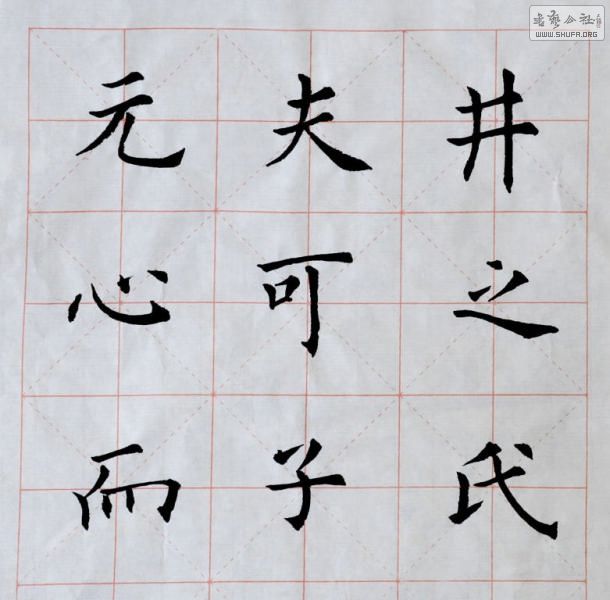 井之氏
夫可子
元心而
书艺公社
WWW.SHUFA.ORG